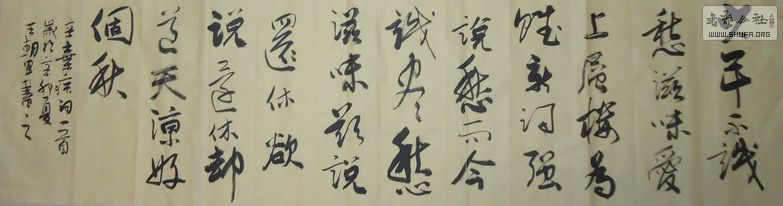 少年不識
愁滋味愛
上層樓為
賦新詞強
說愁而今
識盡愁
滋味欲說
還休欲
說還休却
道天涼好
個秋
辛棄疾詞一首
辛卯夏
書之
書藝公社
WWW.SHUFA.ORG